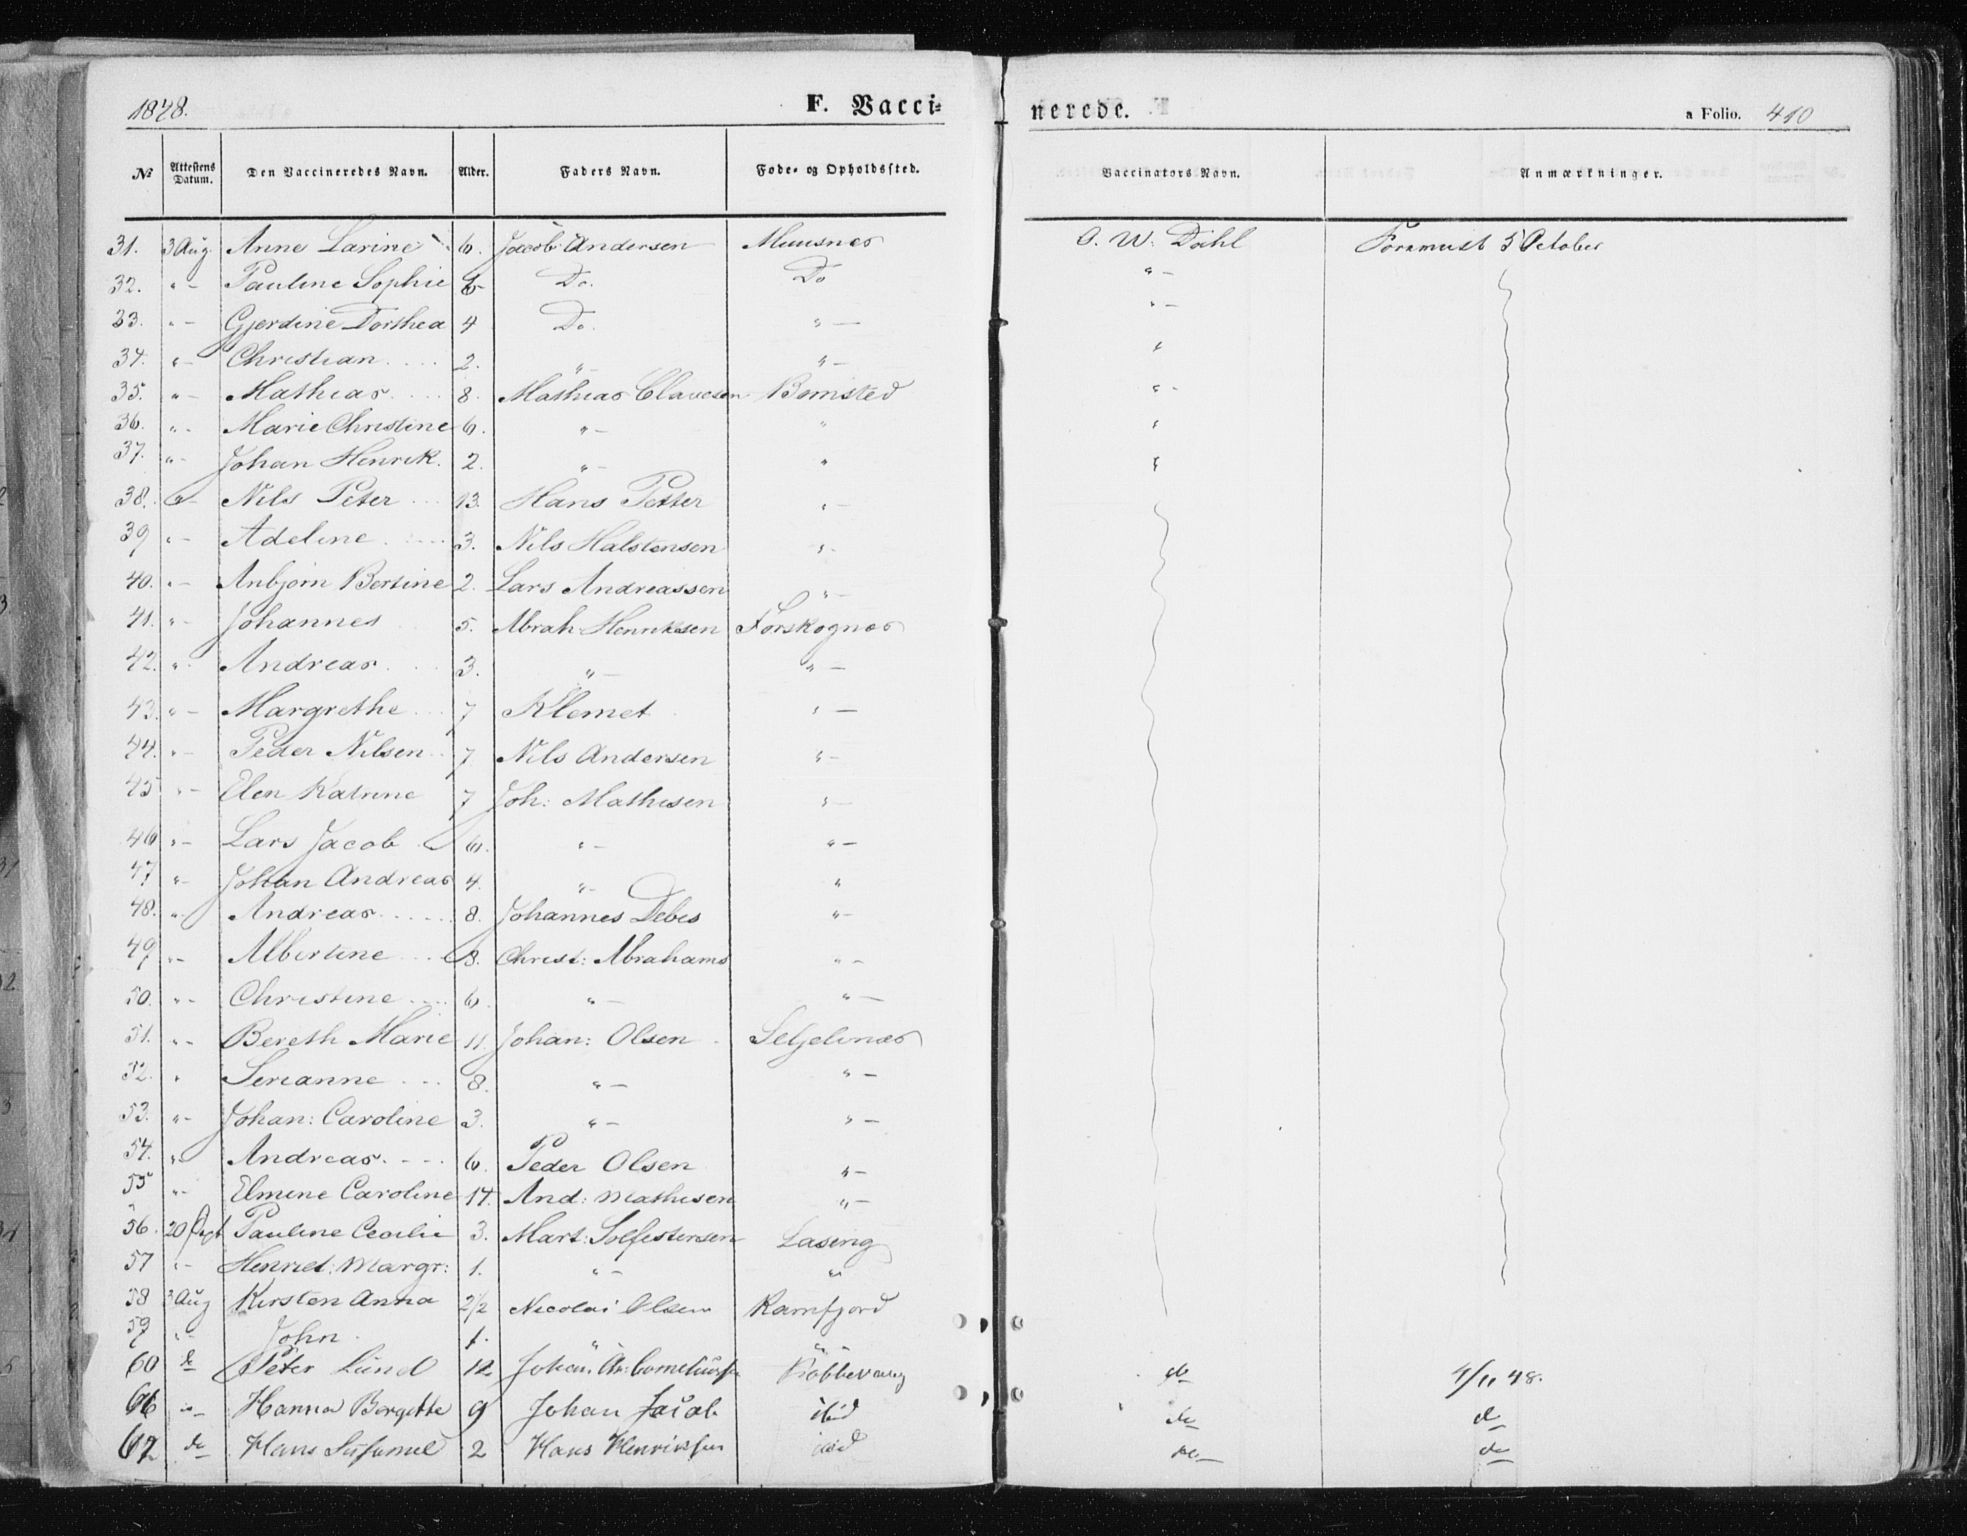 1848. F. Vacci- nerede. a Folio. 410
No Attestens Datum. Den Vaccineredes Navn. Alder. Faders Navn. Føde- og Opholdssted. Vaccinators Navn. Anmærkninger.
31. 3 Aug Anne Larine 6. Jacob Andersen Muusnæs O. W. Dahl 5 October
32. " - Pauline Sophie Do. Do " -
33. " - Gjerdine Dorthea 4 Do. " - " -
34. " - Christian 2. " - " - "
35. " - Mathias 8. Mathias Clausen Bomsted " -
36. " - Marie Christine 6. " - " "
37. " - Johan Henrik. 2. " - " "
38. " - Nils Peter 13. Hans Petter " -
39 " - Adeline 3. Nils Halstensen " -
40. " - Anbjørn Bertine 2. Lars Andreassen " -
41. " - Johannes 5. Abrah: Henriksen Forskognæs
42. " - Andreas 3. " - " -
43. " - Margrethe 7 Klemet " -
44. " - Peder Nilsen 7 Nils Andersen " -
45 " - Elen Katrine 7 Joh: Mathisen " -
46 " - Lars Jacob 6. " - " -
47 " - Johan Andreas 4. " - "
48. " - Andreas 8. Johannes Debes " -
49 " - Albertine 8. Christ: Abrahams " -
50. " - Christine 6. " - " -
51. " - Bereth Marie 11. Johan: Olsen Seljelvnæs
52. " Serianne 8. " - " -
53. " - Johan: Caroline 3. " - " -
54. " - Andreas 6. Peder Olsen " -
55 " - Elmine Caroline 14. And: Mathisen " -
56. 20 Sept Pauline Cecilie 3. Mart: Lasing
57 " - Henriet: Margr: 1. " - "
58 3 Aug Kirsten Anna 2 1/2 Nicolai Olsen Ramfjord
59 " - John 1. " "
60 do Peter Lund 12 Johan Chr: Corneliussen Kobbevaag do 4/11 48.
61 " - Hanna Bergitte 9 Johan Jacob ibid do do
62 do Hans 2 Hans Henriksen ibid do do